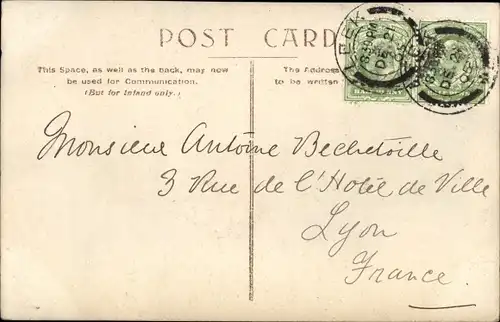 POST CARD
This Space, as well as the back, may now
be used for Communication.
(But for Inland only.)
The Address
to be written
LEEK
DE 2
LEEK
DE 2
Monsieur Antoine Bechetoille
3 Rue de l'Hotel de Ville
Lyon
France.